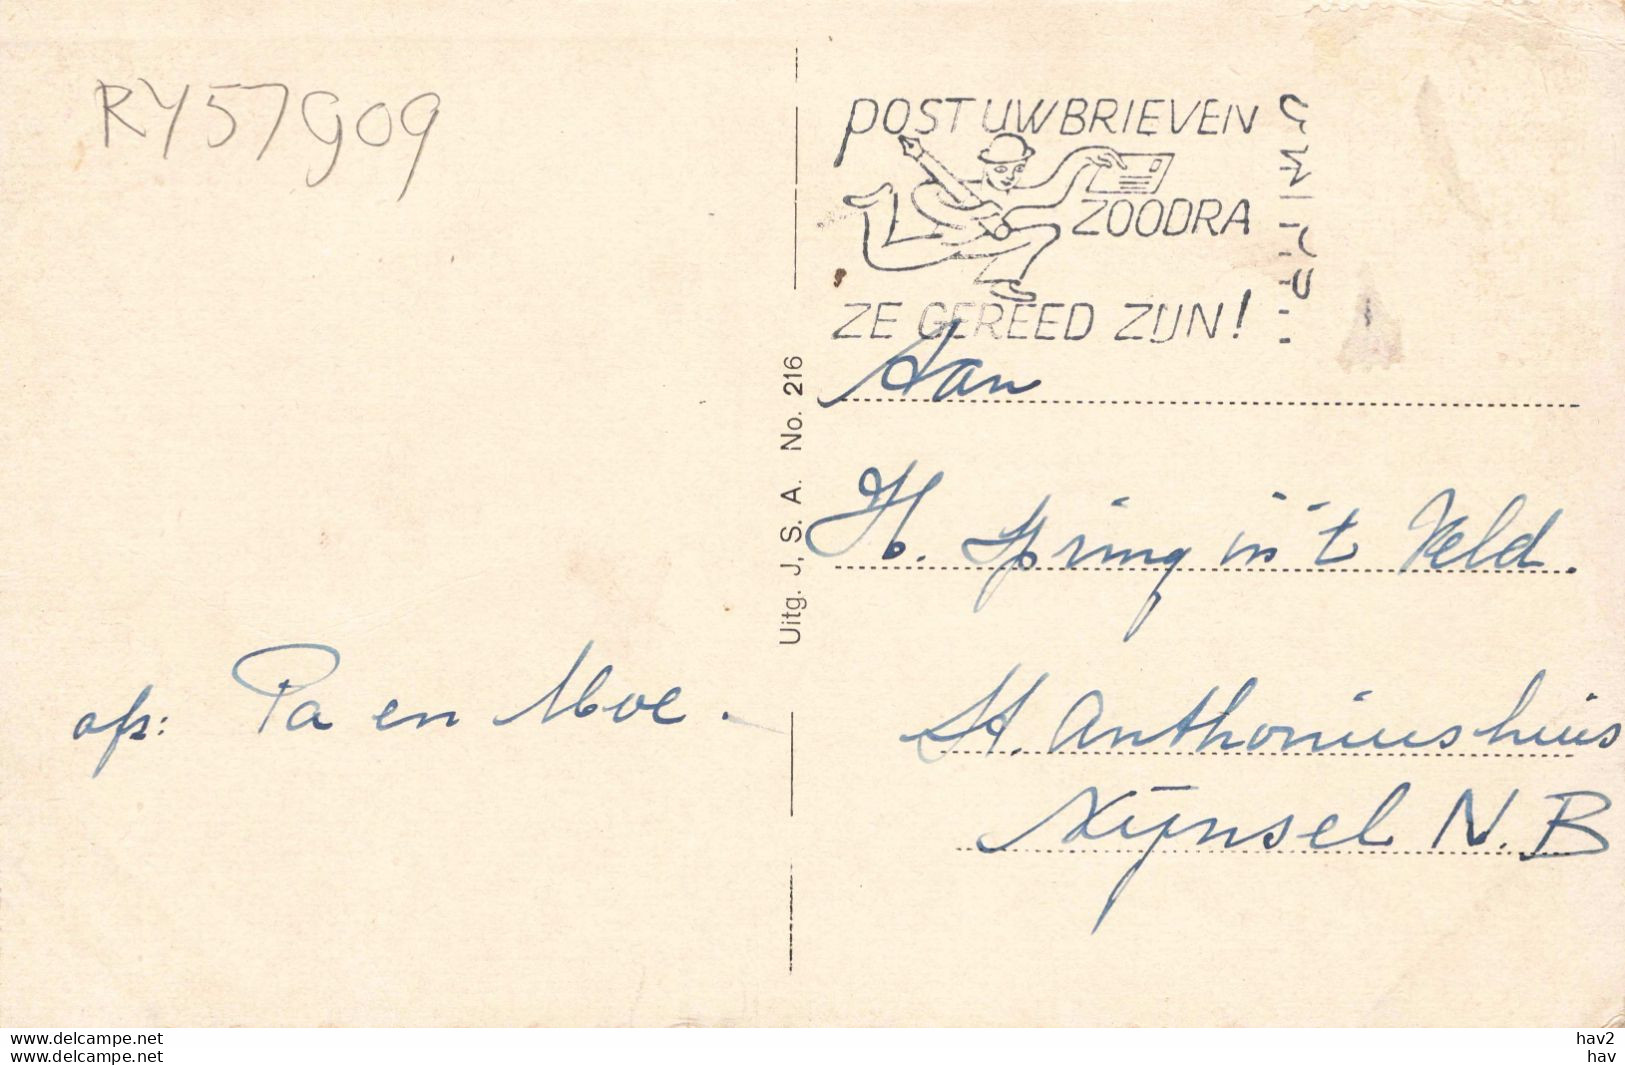 RY57G09
POST UW BRIEVEN
ZOODRA
ZE GEREED ZIJN!
Uitg. J, S. A. No. 216
Aan
H. Spring in 't Veld.
St. Anthoniushuis
Nijnsel N.B
afz: Pa en Moe.
www.delcampe.net
www.delcampe.net
hav2
hav